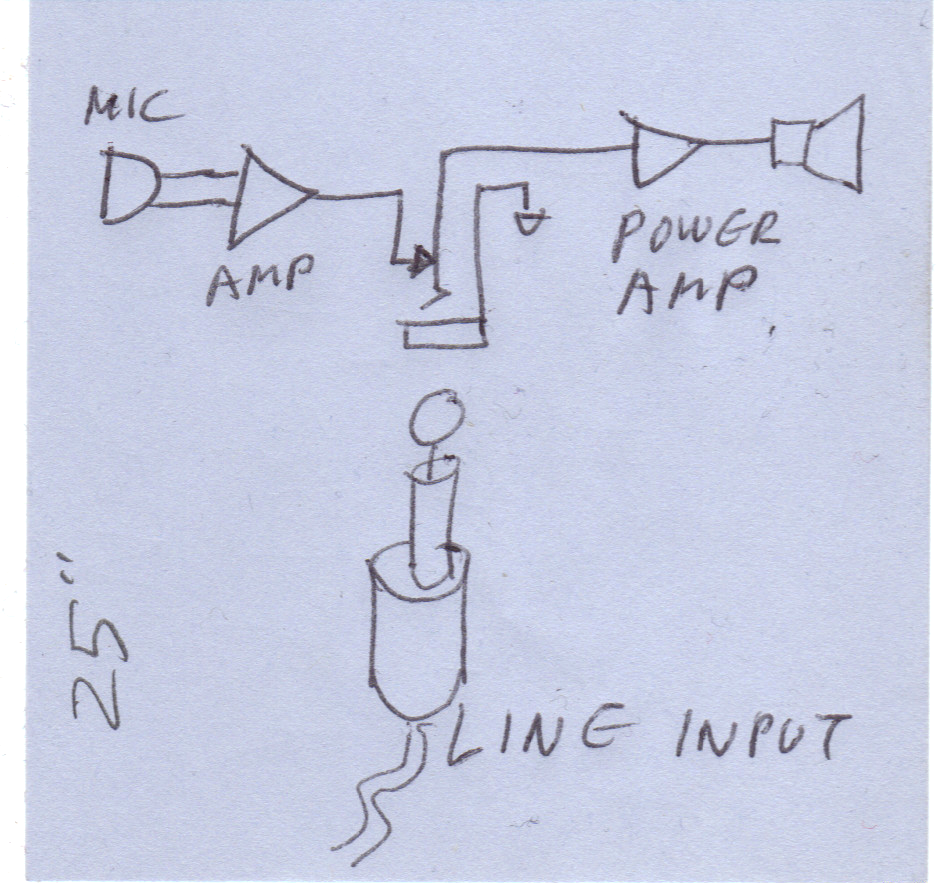 MIC
AMP
POWER
AMP
25"
LINE INPUT